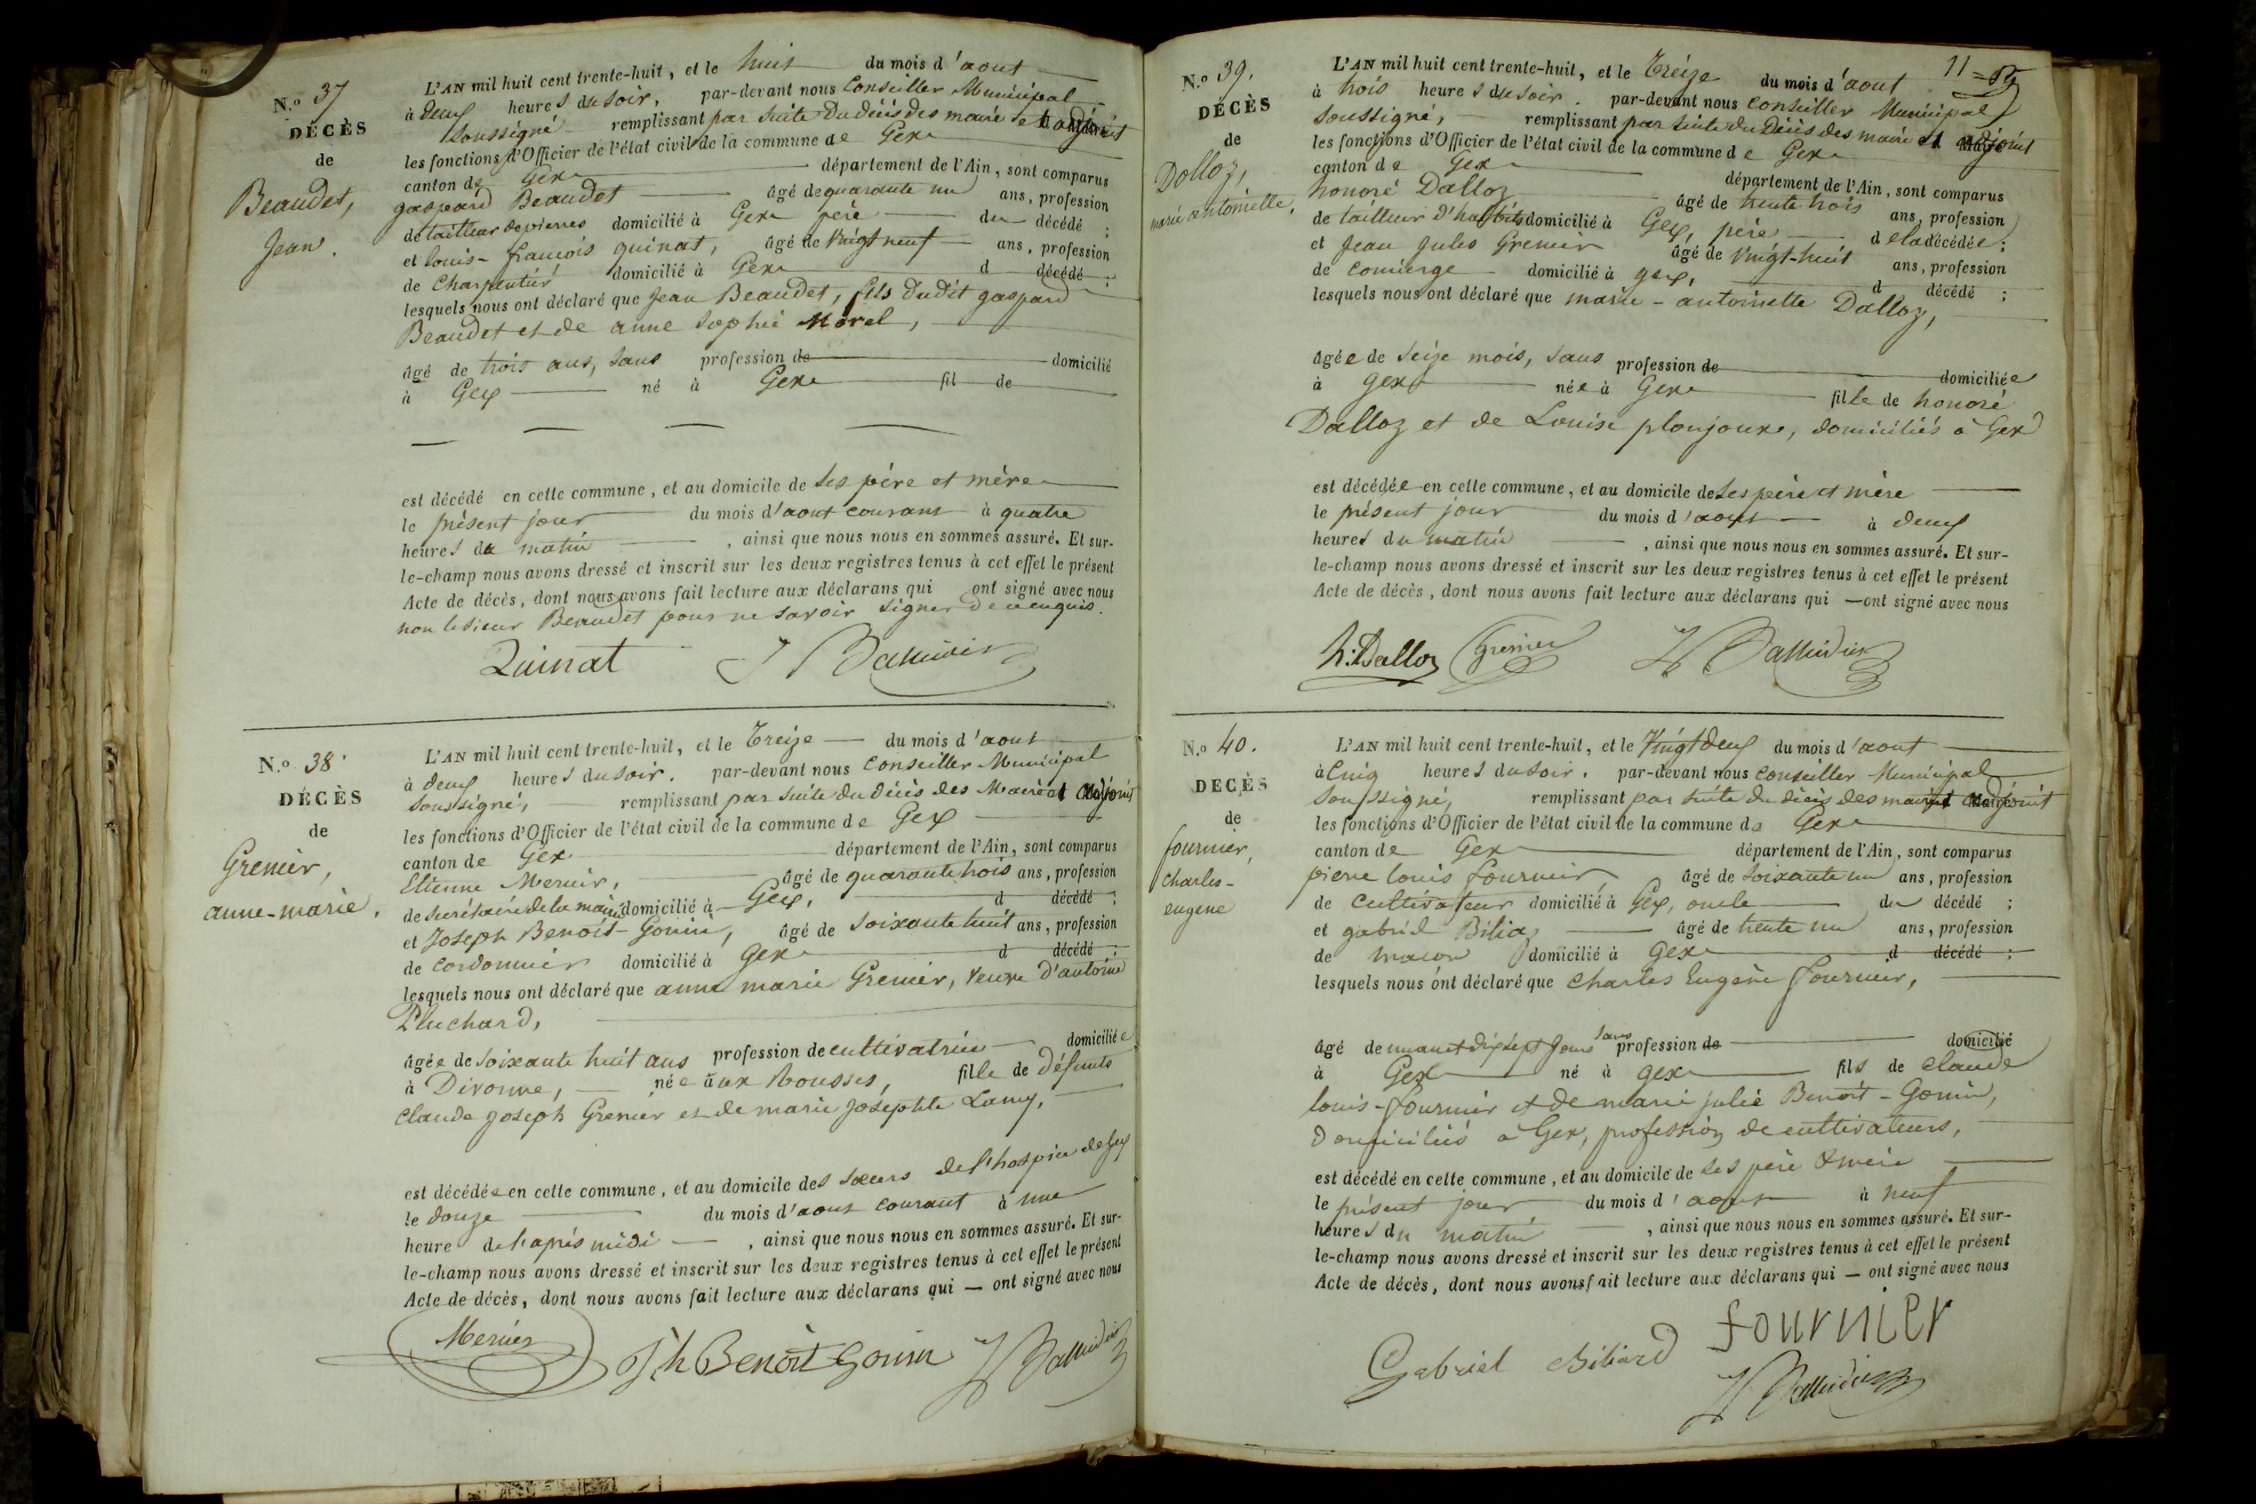 N.o 37
DÉCÈS
de
Beaudet,
Jean.
L'AN mil huit cent trente-huit, et le huit du mois d'aout
à deux heures du soir, par-devant nous Conseiller Municipal
soussigné remplissant par suite du décès des maire et adjoint
les fonctions d'Officier de l'état civil de la commune de Gex
canton de Gex département de l'Ain, sont comparus
gaspard Beaudet âgé de quarante un ans, profession
de tailleur de pierres domicilié à Gex père du décédé ;
et louis-francois quinat, âgé de vingt neuf ans, profession
de Charpentier domicilié à Gex d décédé ;
lesquels nous ont déclaré que Jean Beaudet, fils dudit gaspard
Beaudet et de anne Sophie Morel,
âgé de trois ans, sans profession de domicilié
à Gex né à Gex fil de
est décédé en cette commune, et au domicile de ses père et mère
le présent jour du mois d'aout courant à quatre
heures du matin , ainsi que nous nous en sommes assuré. Et sur-
le-champ nous avons dressé et inscrit sur les deux registres tenus à cet effet le présent
Acte de décès, dont nous avons fait lecture aux déclarans qui ont signé avec nous
non le sieur Beaudet pour ne savoir signer de ce enquis.
Quinat
N.o 38
DÉCÈS
de
Grenier,
anne-marie.
L'AN mil huit cent trente-huit, et le Treize du mois d'aout
à deux heures du soir. par-devant nous Conseiller Municipal
soussigné, remplissant par suite du décès des Maire et adjoint
les fonctions d'Officier de l'état civil de la commune de Gex
canton de Gex département de l'Ain, sont comparus
Etienne Mernier, âgé de quarante trois ans, profession
de secrétaire de la mairie domicilié à Gex, d décédé ;
et Joseph Benoit-Gonin, âgé de soixante huit ans, profession
de cordonnier domicilié à Gex d décédé ;
lesquels nous ont déclaré que anne marie Grenier, veuve d'antoine
Pluchard,
âgée de soixante huit ans profession de cultivatrice domiciliée
à Divonne, née aux Rousses, fille de défunts
Claude Joseph Grenier et de marie Josephte Lamy,
est décédée en cette commune, et au domicile des sœurs de l'hospice de Gex
le douze du mois d'aout courant à une
heure de l'après midi , ainsi que nous nous en sommes assuré. Et sur-
le-champ nous avons dressé et inscrit sur les deux registres tenus à cet effet le présent
Acte de décès, dont nous avons fait lecture aux déclarans qui — ont signé avec nous
Mernier Jh Benoit Gonin
11
N.o 39.
DÉCÈS
de
Dalloz,
marie antoinette.
L'AN mil huit cent trente-huit, et le Treize du mois d'aout
à trois heures du soir. par-devant nous Conseiller Municipal
soussigné, remplissant par suite du décès des maire et adjoint
les fonctions d'Officier de l'état civil de la commune de Gex
canton de Gex département de l'Ain, sont comparus
honoré Dalloz âgé de trente trois ans, profession
de tailleur d'habits domicilié à Gex, père de la décédée ;
et Jean Jules Grenier âgé de vingt-huit ans, profession
de concierge domicilié à gex, d décédé ;
lesquels nous ont déclaré que marie-antoinette Dalloz,
âgée de seize mois, sans profession de domiciliée
à gex née à Gex fille de honoré
Dalloz et de Louise plonjoux, domiciliés à Gex
est décédée en cette commune, et au domicile de ses père et mère
le présent jour du mois d'aout à deux
heures du matin , ainsi que nous nous en sommes assuré. Et sur-
le-champ nous avons dressé et inscrit sur les deux registres tenus à cet effet le présent
Acte de décès, dont nous avons fait lecture aux déclarans qui — ont signé avec nous
h. Dalloz Grenier
N.o 40.
DÉCÈS
de
fournier,
charles-
eugene
L'AN mil huit cent trente-huit, et le Vingt deux du mois d'aout
à cinq heures du soir. par-devant nous conseiller Municipal
soussigné, remplissant par suite du décès des maire et adjoint
les fonctions d'Officier de l'état civil de la commune de Gex
canton de Gex département de l'Ain, sont comparus
pierre louis fournier âgé de soixante un ans, profession
de cultivateur domicilié à Gex, oncle du décédé ;
et gabriel Biliaz âgé de trente un ans, profession
de maçon domicilié à gex d décédé ;
lesquels nous ont déclaré que Charles Eugène fournier,
âgé de un an et dix sept jours sans profession de domicilié
à Gex né à gex fils de claude
louis-fournier et de marie julie Benoit-Gonin,
domiciliés à Gex, profession de cultivateurs,
est décédé en cette commune, et au domicile de ses père & mère
le présent jour du mois d'aout à neuf
heures du matin , ainsi que nous nous en sommes assuré. Et sur-
le-champ nous avons dressé et inscrit sur les deux registres tenus à cet effet le présent
Acte de décès, dont nous avons fait lecture aux déclarans qui — ont signé avec nous
fournier
Gabriel Biliard